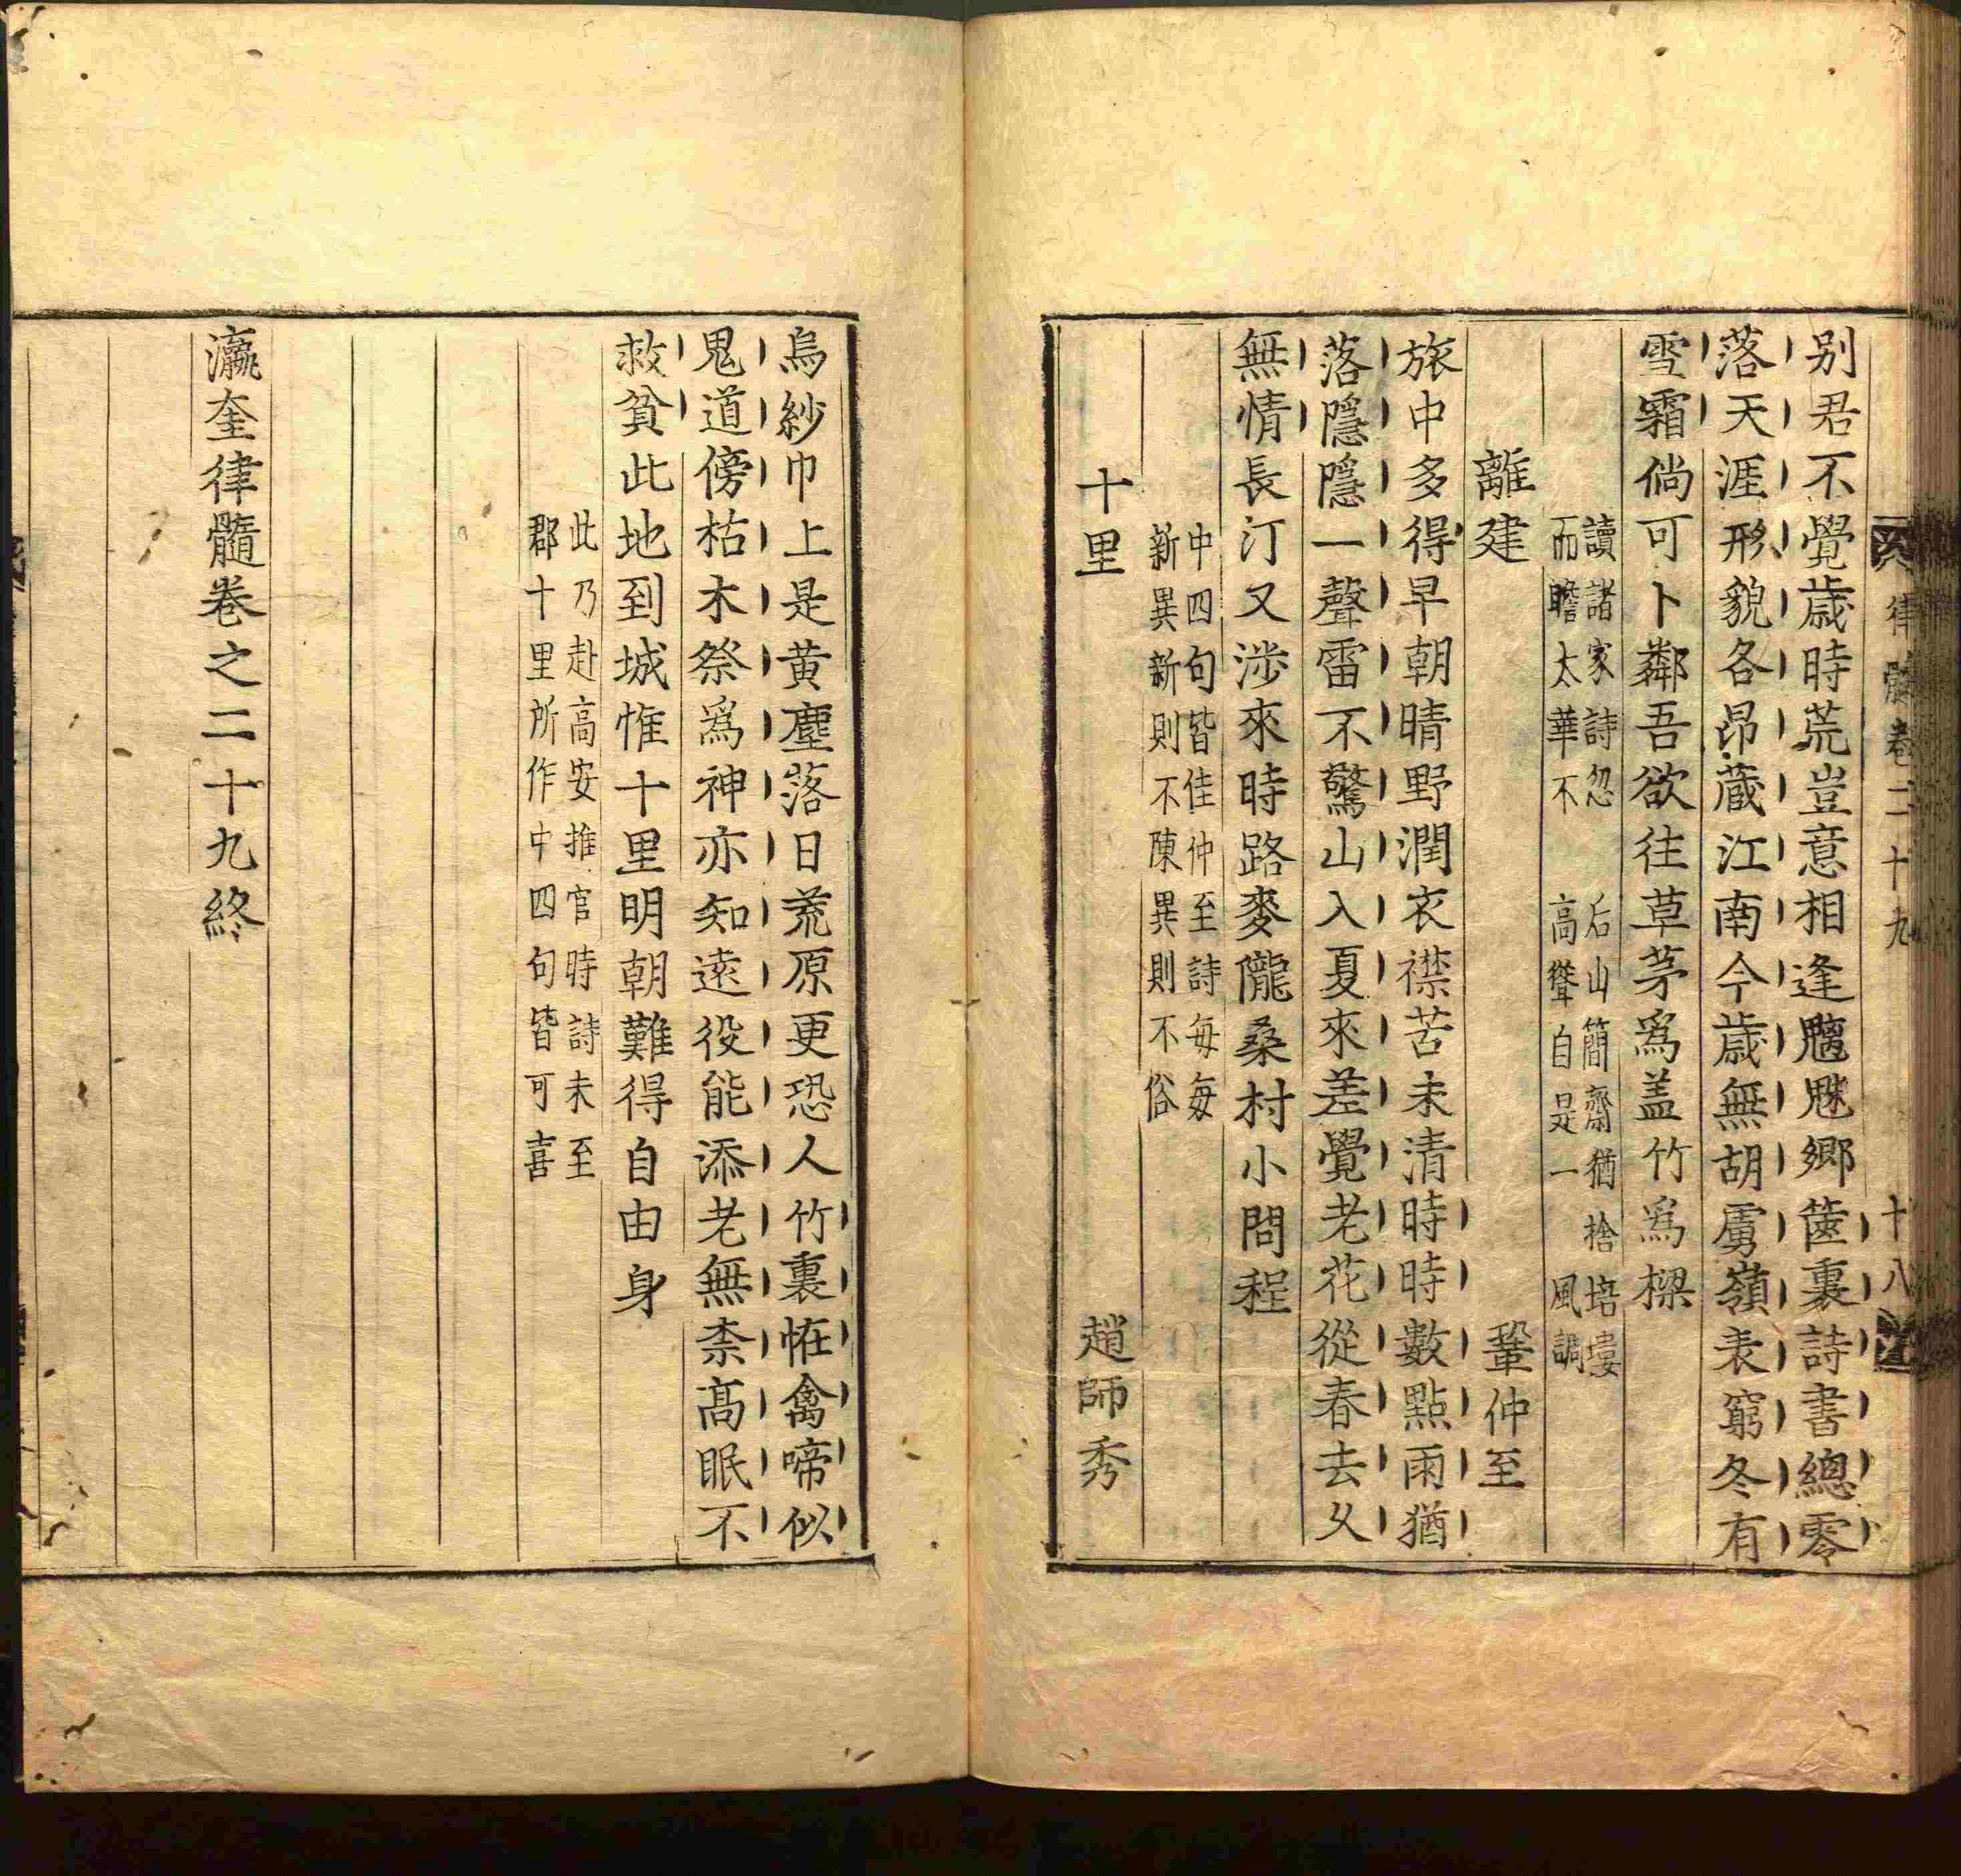 律髓卷二十九　十八
别君不覺歲時荒豈意相逢魑魅鄉篋裏詩書總零
落天涯形貌各昂蔵江南今歲無胡虜嶺表窮冬有
雪霜倘可卜鄰吾欲往草茅爲盖竹爲樑
讀諸家詩忽　后山簡齋猶捨培塿
而瞻太華不　高聳自是一　風調
離建　鞏仲至
旅中多得早朝晴野潤衣襟苦未清時時數點雨猶
落隱隱一聲雷不驚山入夏來差覺老花從春去乆
無情長汀又涉來時路麥隴桑村小問程
中四句皆佳仲至詩每每
新異新則不陳異則不俗
十里　趙師秀
烏紗巾上是黄塵落日荒原更恐人竹裏恠禽啼似
鬼道傍枯木祭爲神亦知遠役能添老無柰髙眠不
救貧此地到城惟十里明朝難得自由身
此乃赴高安推官時詩未至
郡十里所作中四句皆可喜
瀛奎律髓卷之二十九終